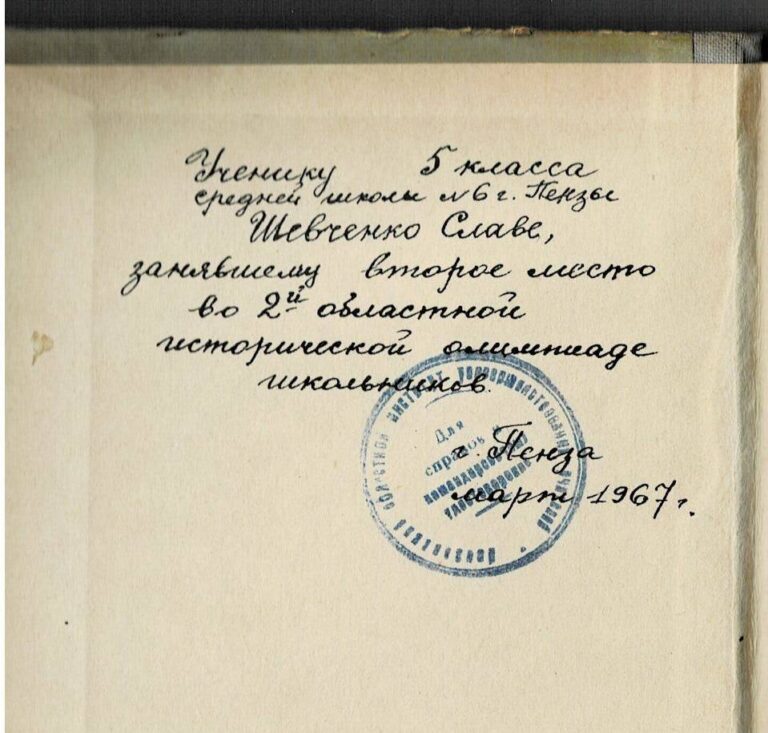 Ученику 5 класса
средней школы №6 г. Пензы
Шевченко Славе,
занявшему второе место
во 2й областной
исторической олимпиаде
школьников.
г. Пенза
март 1967 г.
Для
справок и
командировочных
областной институт усовершенствования учителей